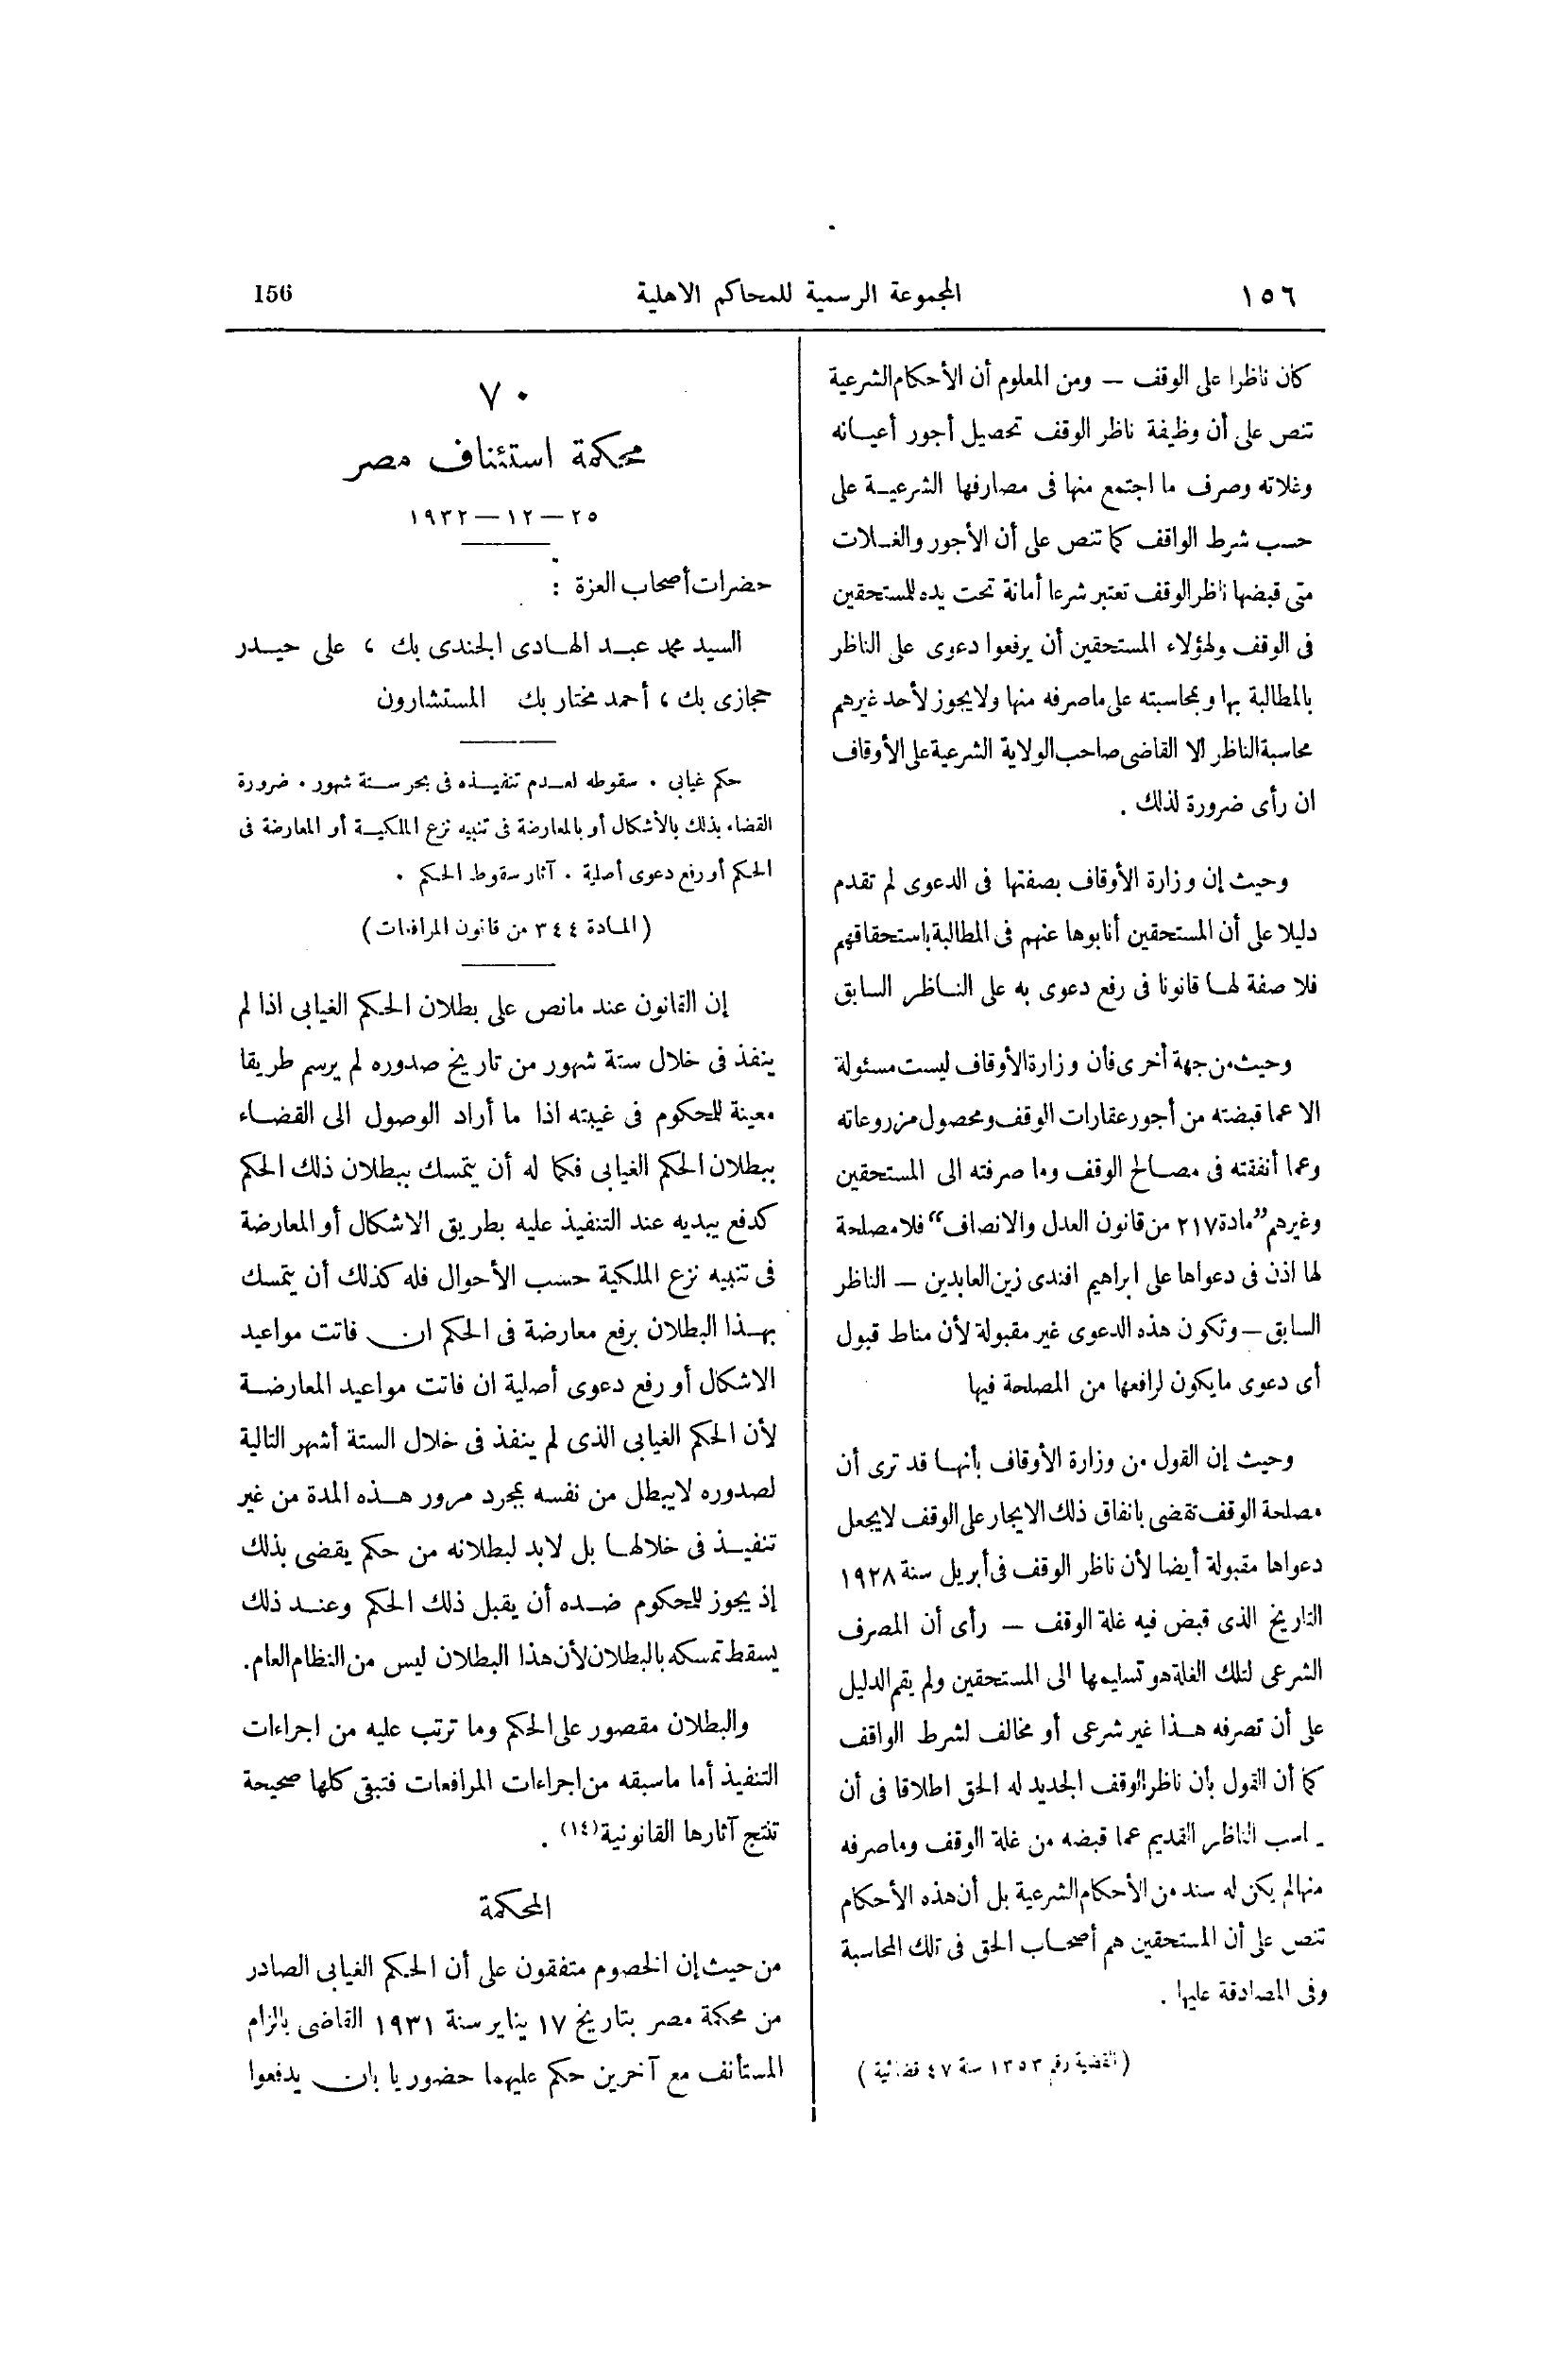 ١٥٦
المجموعة الرسمية للمحاكم الاهلية
156
كان ناظرا على الوقف — ومن المعلوم أن الأحكام الشرعية
تنص على أن وظيفة ناظر الوقف تحصيل أجور أعيانه
وغلاته وصرف ما اجتمع منها فى مصارفها الشرعية على
حسب شرط الواقف كما تنص على أن الأجور والغلات
متى قبضها ناظر الوقف تعتبر شرعا أمانة تحت يده للمستحقين
فى الوقف ولهؤلاء المستحقين أن يرفعوا دعوى على الناظر
بالمطالبة بها وبمحاسبته على ماصرفه منها ولايجوز لأحد غيرهم
محاسبة الناظر الا القاضى صاحب الولاية الشرعية على الأوقاف
ان رأى ضرورة لذلك .
وحيث إن وزارة الأوقاف بصفتها فى الدعوى لم تقدم
دليلا على أن المستحقين أنابوها عنهم فى المطالبة باستحقاقهم
فلا صفة لها قانونا فى رفع دعوى به على الناظر السابق
وحيث من جهة أخرى فأن وزارة الأوقاف ليست مسئولة
الا عما قبضته من أجور عقارات الوقف ومحصول مزروعاته
وعما أنفقته فى مصالح الوقف وما صرفته الى المستحقين
وغيرهم ”مادة ٢١٧ من قانون العدل والانصاف“ فلا مصلحة
لها اذن فى دعواها على ابراهيم افندى زين العابدين — الناظر
السابق — وتكون هذه الدعوى غير مقبولة لأن مناط قبول
أى دعوى مايكون لرافعها من المصلحة فيها
وحيث إن القول من وزارة الأوقاف بأنها قد ترى أن
مصلحة الوقف تقضى بانفاق ذلك الايجار على الوقف لايجعل
دعواها مقبولة أيضا لأن ناظر الوقف فى أبريل سنة ١٩٢٨
التاريخ الذى قبض فيه غلة الوقف — رأى أن المصرف
الشرعى لتلك الغلة هو تسليمها الى المستحقين ولم يقم الدليل
على أن تصرفه هذا غير شرعى أو مخالف لشرط الواقف
كما أن القول بأن ناظر الوقف الجديد له الحق اطلاقا فى أن
اسب الناظر القديم عما قبضه من غلة الوقف وماصرفه
منها لم يكن له سند من الأحكام الشرعية بل أن هذه الأحكام
تنص على أن المستحقين هم أصحاب الحق فى تلك المحاسبة
وفى المصادقة عليها .
(القضية رقم ١٣٥٣ سنة ٤٧ قضائية)
٧٠
محكمة استئناف مصر
٢٥ — ١٢ — ١٩٣٢
حضرات أصحاب العزة :
السيد محمد عبد الهادى الجندى بك ، على حيدر
حجازى بك ، أحمد مختار بك المستشارون
حكم غيابى . سقوطه لعدم تنفيذه فى بحر ستة شهور . ضرورة
القضاء بذلك بالأشكال أو بالمعارضة فى تنبيه نزع الملكية أو المعارضة فى
الحكم أو رفع دعوى أصلية . آثار سقوط الحكم .
(المادة ٣٤٤ من قانون المرافعات)
إن القانون عند مانص على بطلان الحكم الغيابى اذا لم
ينفذ فى خلال ستة شهور من تاريخ صدوره لم يرسم طريقا
معينة للمحكوم فى غيبته اذا ما أراد الوصول الى القضاء
ببطلان الحكم الغيابى فكما له أن يتمسك ببطلان ذلك الحكم
كدفع يبديه عند التنفيذ عليه بطريق الاشكال أو المعارضة
فى تنبيه نزع الملكية حسب الأحوال فله كذلك أن يتمسك
بهذا البطلان برفع معارضة فى الحكم ان فاتت مواعيد
الاشكال أو رفع دعوى أصلية ان فاتت مواعيد المعارضة
لأن الحكم الغيابى الذى لم ينفذ فى خلال الستة أشهر التالية
لصدوره لايبطل من نفسه بمجرد مرور هذه المدة من غير
تنفيذ فى خلالها بل لابد لبطلانه من حكم يقضى بذلك
إذ يجوز للمحكوم ضده أن يقبل ذلك الحكم وعند ذلك
يسقط تمسكه بالبطلان لأن هذا البطلان ليس من النظام العام.
والبطلان مقصور على الحكم وما ترتب عليه من اجراءات
التنفيذ أما ماسبقه من اجراءات المرافعات فتبقى كلها صحيحة
تنتج آثارها القانونية (١٤) .
المحكمة
من حيث إن الخصوم متفقون على أن الحكم الغيابى الصادر
من محكمة مصر بتاريخ ١٧ يناير سنة ١٩٣١ القاضى بالزام
المستأنف مع آخرين حكم عليهما حضوريا بان يدفعوا